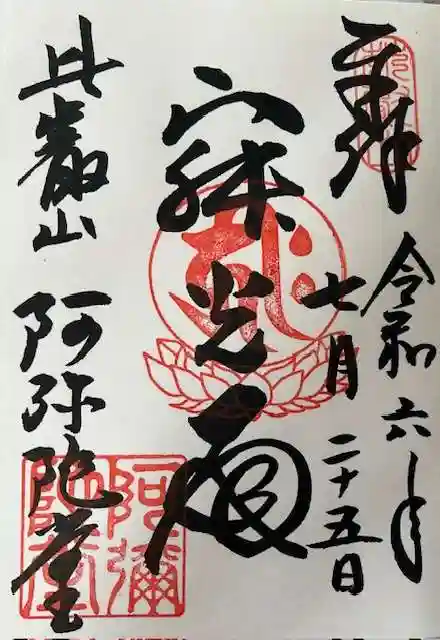 奉拝
令和六年
七月二十五日
寂光殿
比叡山
阿弥陀堂
阿彌陀堂